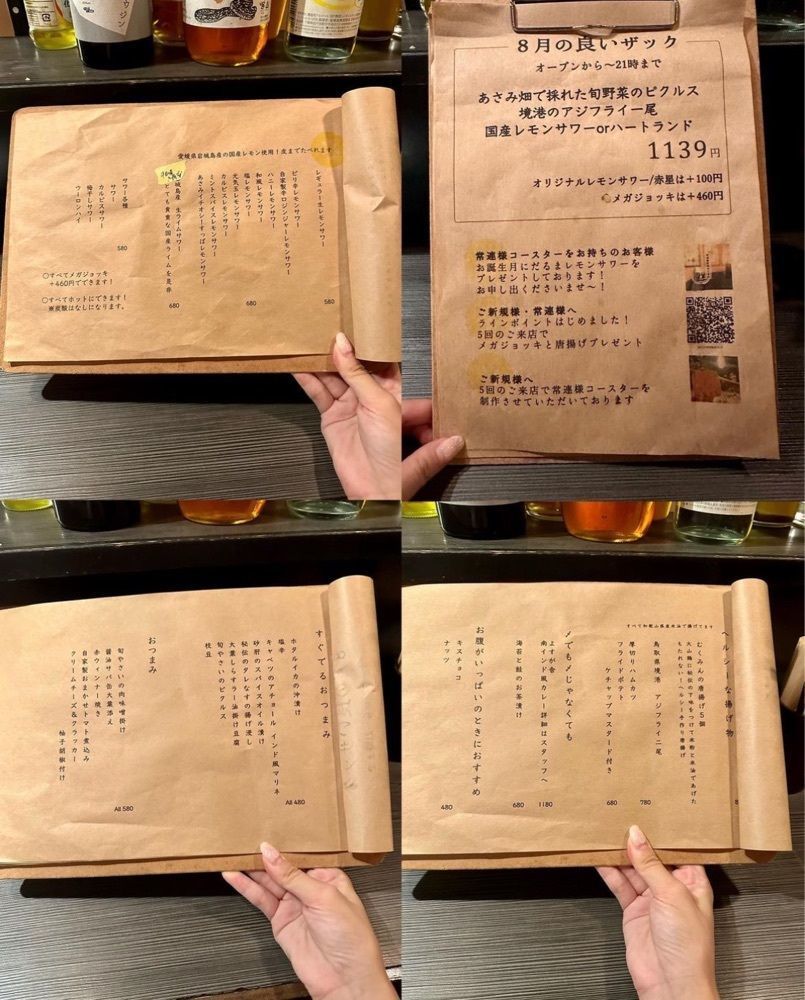 愛媛県岩城島産の国産レモン使用！皮までたべれます。
レギュラー生レモンサワー
580
ピリ辛レモンサワー
自家製辛口ジンジャーレモンサワー
ハニーレモンサワー
和風レモンサワー
塩レモンサワー
元気玉レモンサワー
カルピスレモンサワー
ミントスパイスレモンサワー
あさみイチオシーすっぱレモンサワー
680
城島産 生ライムサワー
とても貴重な国産ライムを是非
680
サワー各種
サワー
カルピスサワー
梅干しサワー
ウーロンハイ
580
○すべてメガジョッキ
+460円でできます！
○すべてホットにできます！
※炭酸はなしになります。
8月の良いザック
オープンから〜21時まで
あさみ畑で採れた旬野菜のピクルス
境港のアジフライ一尾
国産レモンサワーorハートランド
1139円
オリジナルレモンサワー/赤星は+100円
メガジョッキは+460円
常連様コースターをお持ちのお客様
お誕生月にだるまレモンサワーを
プレゼントしております！
お申し出くださいませ〜！
ご新規様・常連様へ
ラインポイントはじめました！
5回のご来店で
メガジョッキと唐揚げプレゼント
ご新規様へ
5回のご来店で常連様コースターを
制作させていただいております
すぐでるおつまみ
ホタルイカの沖漬け
塩辛
キャベツのアチョール インド風マリネ
砂肝のスパイスオイル漬け
秘伝のタレなすの揚げ浸し
大葉しらすラー油掛け豆腐
旬やさいのピクルス
枝豆
All 480
おつまみ
旬やさいの肉味噌掛け
醤油サバ缶大葉添え
赤ウィンナー焼き
自家製おまかせトマト煮込み
クリームチーズ&クラッカー
柚子胡椒付け
All 580
すべて和歌山県産米油で揚げてます
ヘルシーな揚げ物
むくみんの唐揚げ5個
大山鶏に秘伝の下味をつけて米粉と米油であげた
もたれない！ヘルシー手作り唐揚げ
8
鳥取県境港 アジフライ二尾
780
厚切りハムカツ
フライドポテト
ケチャップマスタード付き
680
〆でも〆じゃなくても
よすが舎
南インド風カレー詳細はスタッフへ
1180
海苔と鮭のお茶漬け
680
お腹がいっぱいのときにおすすめ
キスチョコ
ナッツ
480